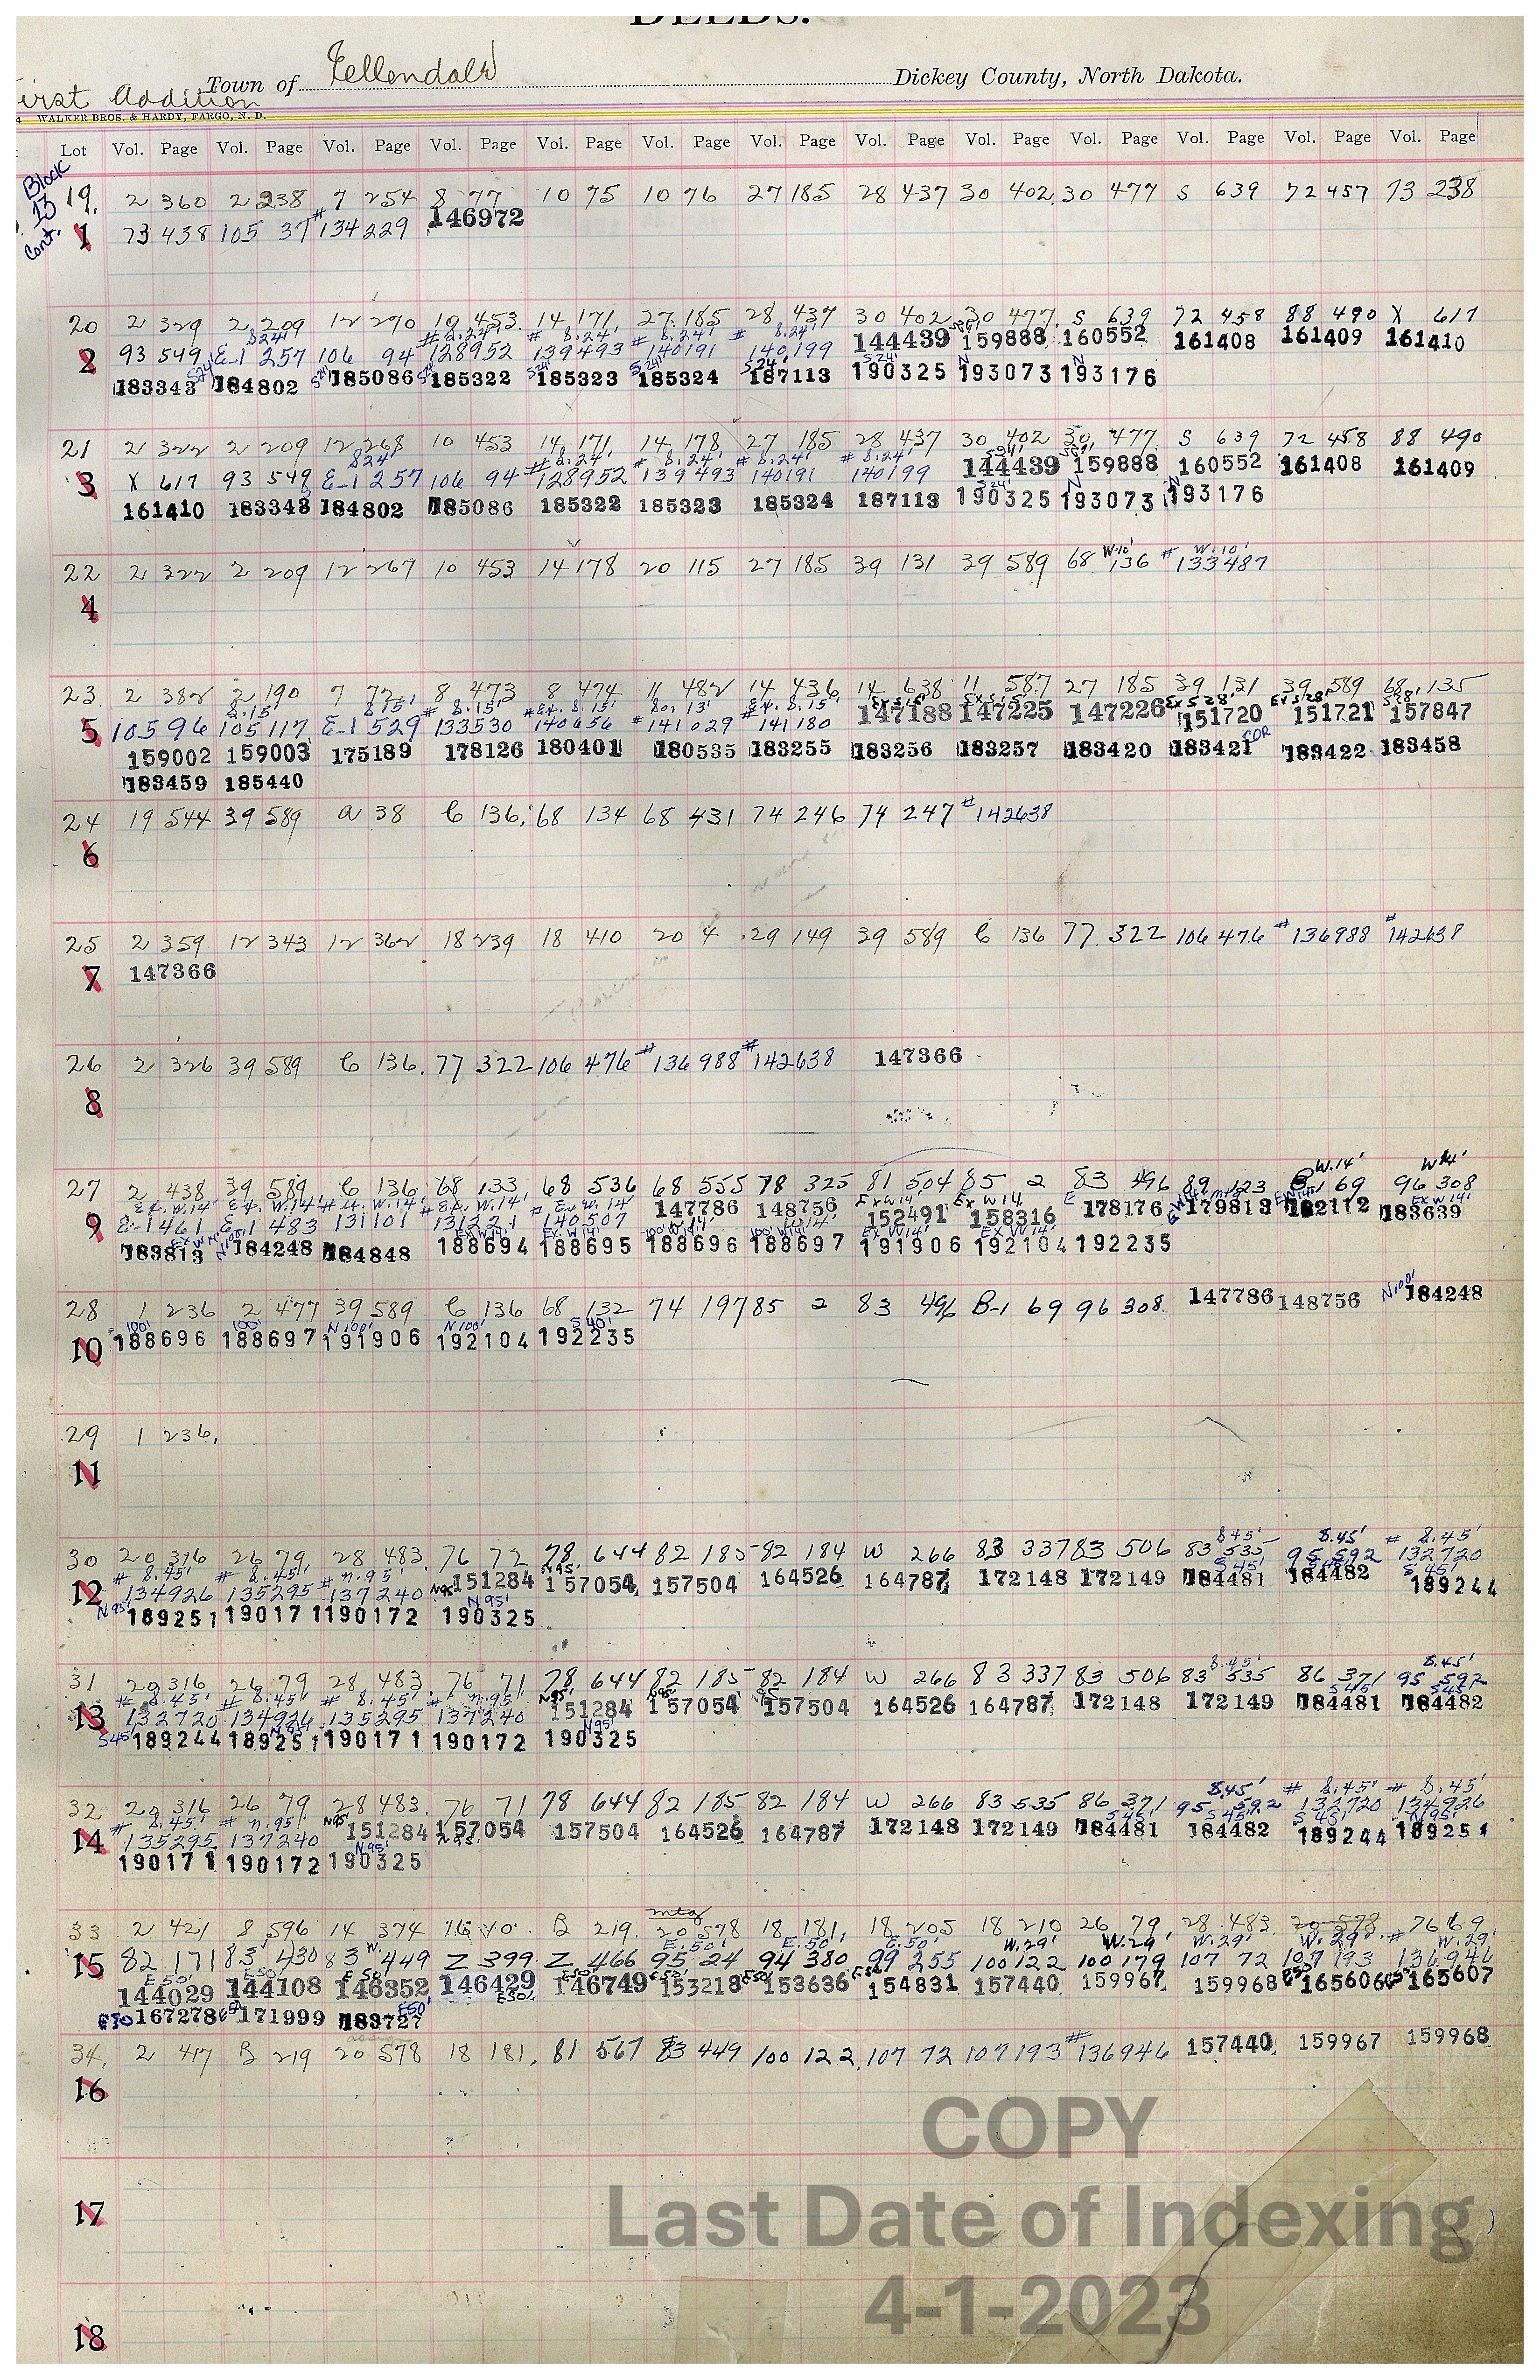 DEEDS.
Town of Ellendale Dickey County, North Dakota.
First Addition
WALKER BROS. & HARDY, FARGO, N. D.
Lot Vol. Page Vol. Page Vol. Page Vol. Page Vol. Page Vol. Page Vol. Page Vol. Page Vol. Page Vol. Page Vol. Page Vol. Page Vol. Page
Block 13 Cont.
19. 2 360 2 238 7 254 8 77 10 75 10 76 27 185 28 437 30 402 30 477 S 639 72 457 73 238
1 73 438 105 37 #134229 146972
20 2 329 2 209 12 270 10 453 14 171 27 185 28 437 30 402 30 477 S 639 72 458 88 490 X 617
S24' # S.24' # S.24' # S.24' # S.24'
2 93 549 E-1 257 106 94 128952 139493 140191 140199 144439 159888 160552 161408 161409 161410
183343 184802 185086 185322 185323 185324 187113 190325 193073 193176
21 2 322 2 209 12 268 10 453 14 171 14 178 27 185 28 437 30 402 30 477 S 639 72 458 88 490
S24' # S.24' # S.24' # S.24' # S.24'
3 X 617 93 549 E-1 257 106 94 128952 139493 140191 140199 144439 159888 160552 161408 161409
161410 183343 184802 185086 185322 185323 185324 187113 190325 193073 193176
22 2 322 2 209 12 267 10 453 14 178 20 115 27 185 39 131 39 589 68 W.10' 136 # W.10' 133487
4
23 2 382 2 190 7 72 8 473 8 474 11 482 14 436 14 638 11 587 27 185 39 131 39 589 68 135
5 105 96 105 117 E-1 529 133530 140656 141029 141180 147188 147225 147226 151720 151721 157847
159002 159003 175189 178126 180401 180535 183255 183256 183257 183420 183421 COR 183422 183458
183459 185440
24 19 544 39 589 a 38 C 136 68 134 68 431 74 246 74 247 #142638
6
25 2 359 12 343 12 362 18 239 18 410 20 4 29 149 39 589 C 136 77 322 106 476 #136988 #142638
7 147366
26 2 326 39 589 C 136 77 322 106 476 #136988 #142638 147366
8
W.14' W14'
27 2 438 39 589 C 136 68 133 68 536 68 555 78 325 81 504 85 2 83 496 89 123 B-1 69 96 308
9 E-1 461 E-1 483 131101 131221 140507 147786 148756 152491 158316 178176 179813 182112 183639
183813 184248 184848 188694 188695 188696 188697 191906 192104 192235
28 1 236 2 477 39 589 C 136 68 132 74 197 85 2 83 496 B-1 69 96 308 147786 148756 N100' 184248
100' 100' N100' N100' S40'
10 188696 188697 191906 192104 192235
29 1 236
11
8.45' 8.45' # 8.45'
30 20 316 26 79 28 483 76 72 78 644 82 185 82 184 W 266 83 337 83 506 83 535 95 592 132720
# 8.45' # 8.45' # n.95'
12 134926 135295 137240 151284 157054 157504 164526 164787 172148 172149 184481 184482 189244
N95' 189251 190171 190172 190325
31 20 316 26 79 28 483 76 71 78 644 82 185 82 184 W 266 83 337 83 506 83 535 86 371 95 592
# 8.45' # 8.45' # 8.45' # n.95'
13 132720 134926 135295 137240 151284 157054 157504 164526 164787 172148 172149 184481 184482
S45' 189244 189251 190171 190172 190325
8.45' # 8.45' # 8.45'
32 20 316 26 79 28 483 76 71 78 644 82 185 82 184 W 266 83 535 86 371 95 592 132720 134926
# 8.45' # n.95'
14 135295 137240 151284 157054 157504 164526 164787 172148 172149 184481 184482 189244 189251
190171 190172 190325
mtg
33 2 421 8 596 14 374 B 219 20 578 18 181 18 205 18 210 26 79 28 483 20 578 76 69
15 82 171 83 430 83 W. 449 Z 399 Z 466 95 24 94 380 99 255 100 122 100 179 107 72 107 193 #136946
144029 144108 146352 146429 146749 153218 153636 154831 157440 159967 159968 165606 165607
E50 167278 E50 171999 183727
34. 2 417 B 219 20 578 18 181 81 567 83 449 100 122 107 72 107 193 #136946 157440 159967 159968
16
COPY
17
Last Date of Indexing
4-1-2023
18